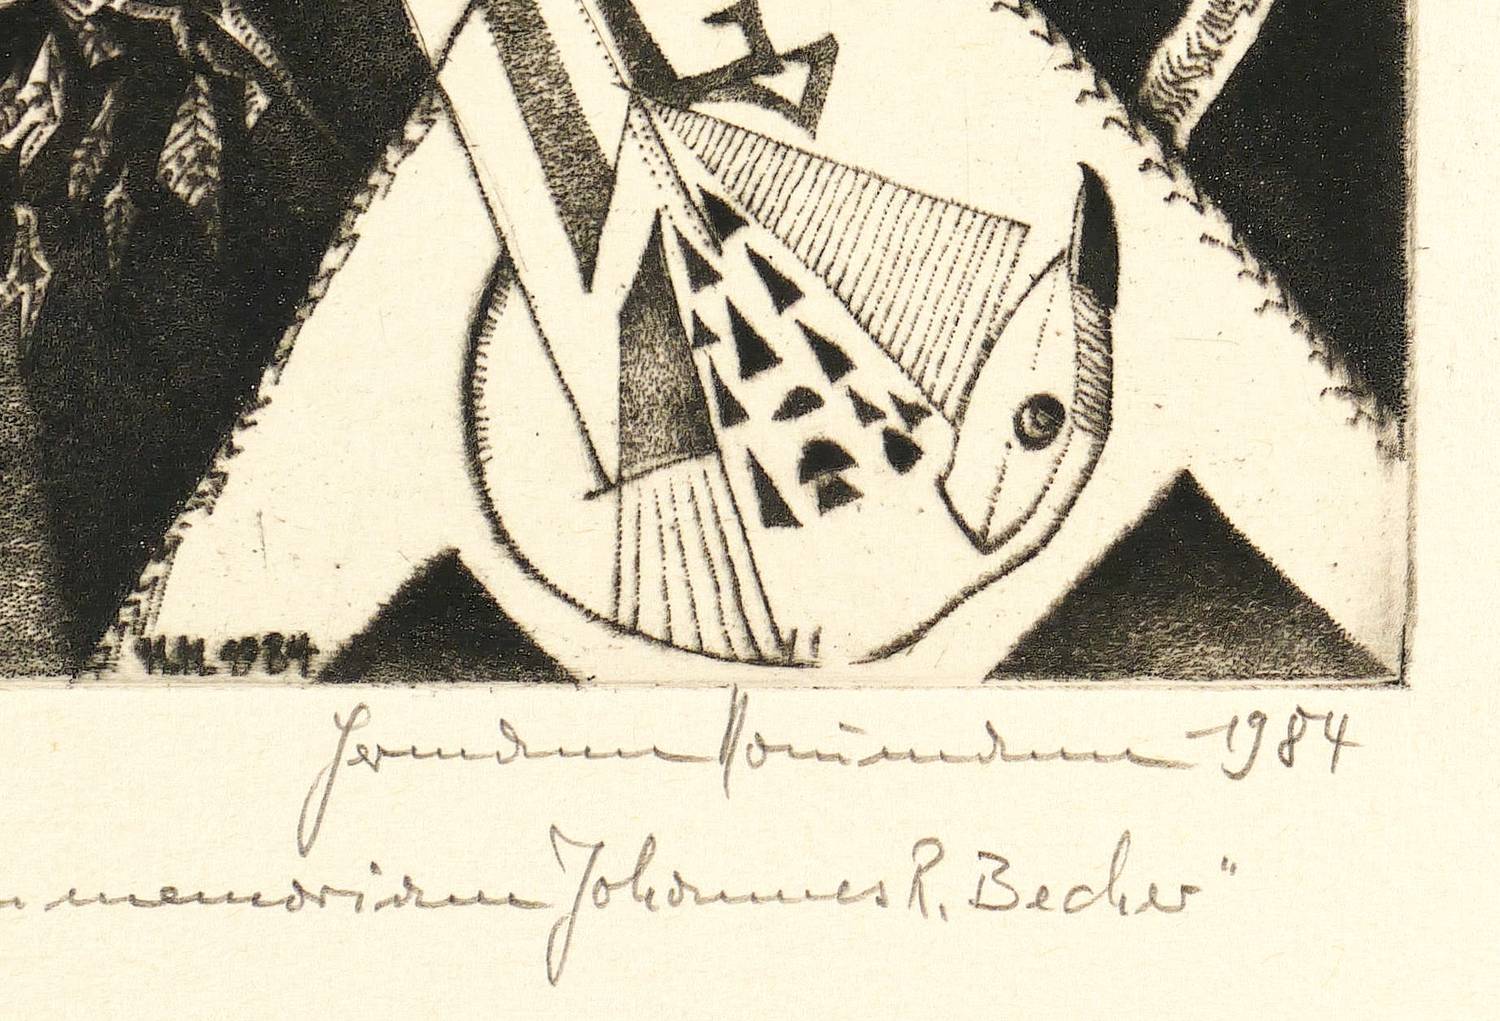 H.N. 1984
Hermann Naumann 1984
memoriam Johannes R. Becher"